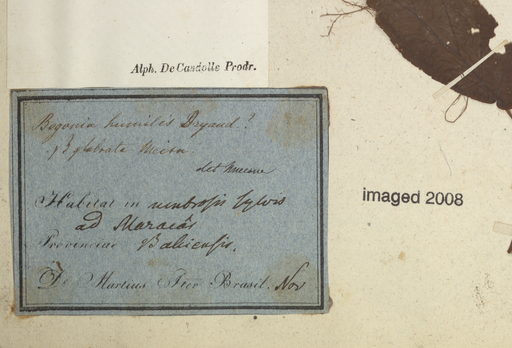 Alph. De Candolle Prodr.
Begonia humilis Dryand?
glabrata
Habitat in umbrosis sylvis
ad Maracás
Provinciae Bahiensis.
Dr Martius Iter Brasil. Nov
imaged 2008